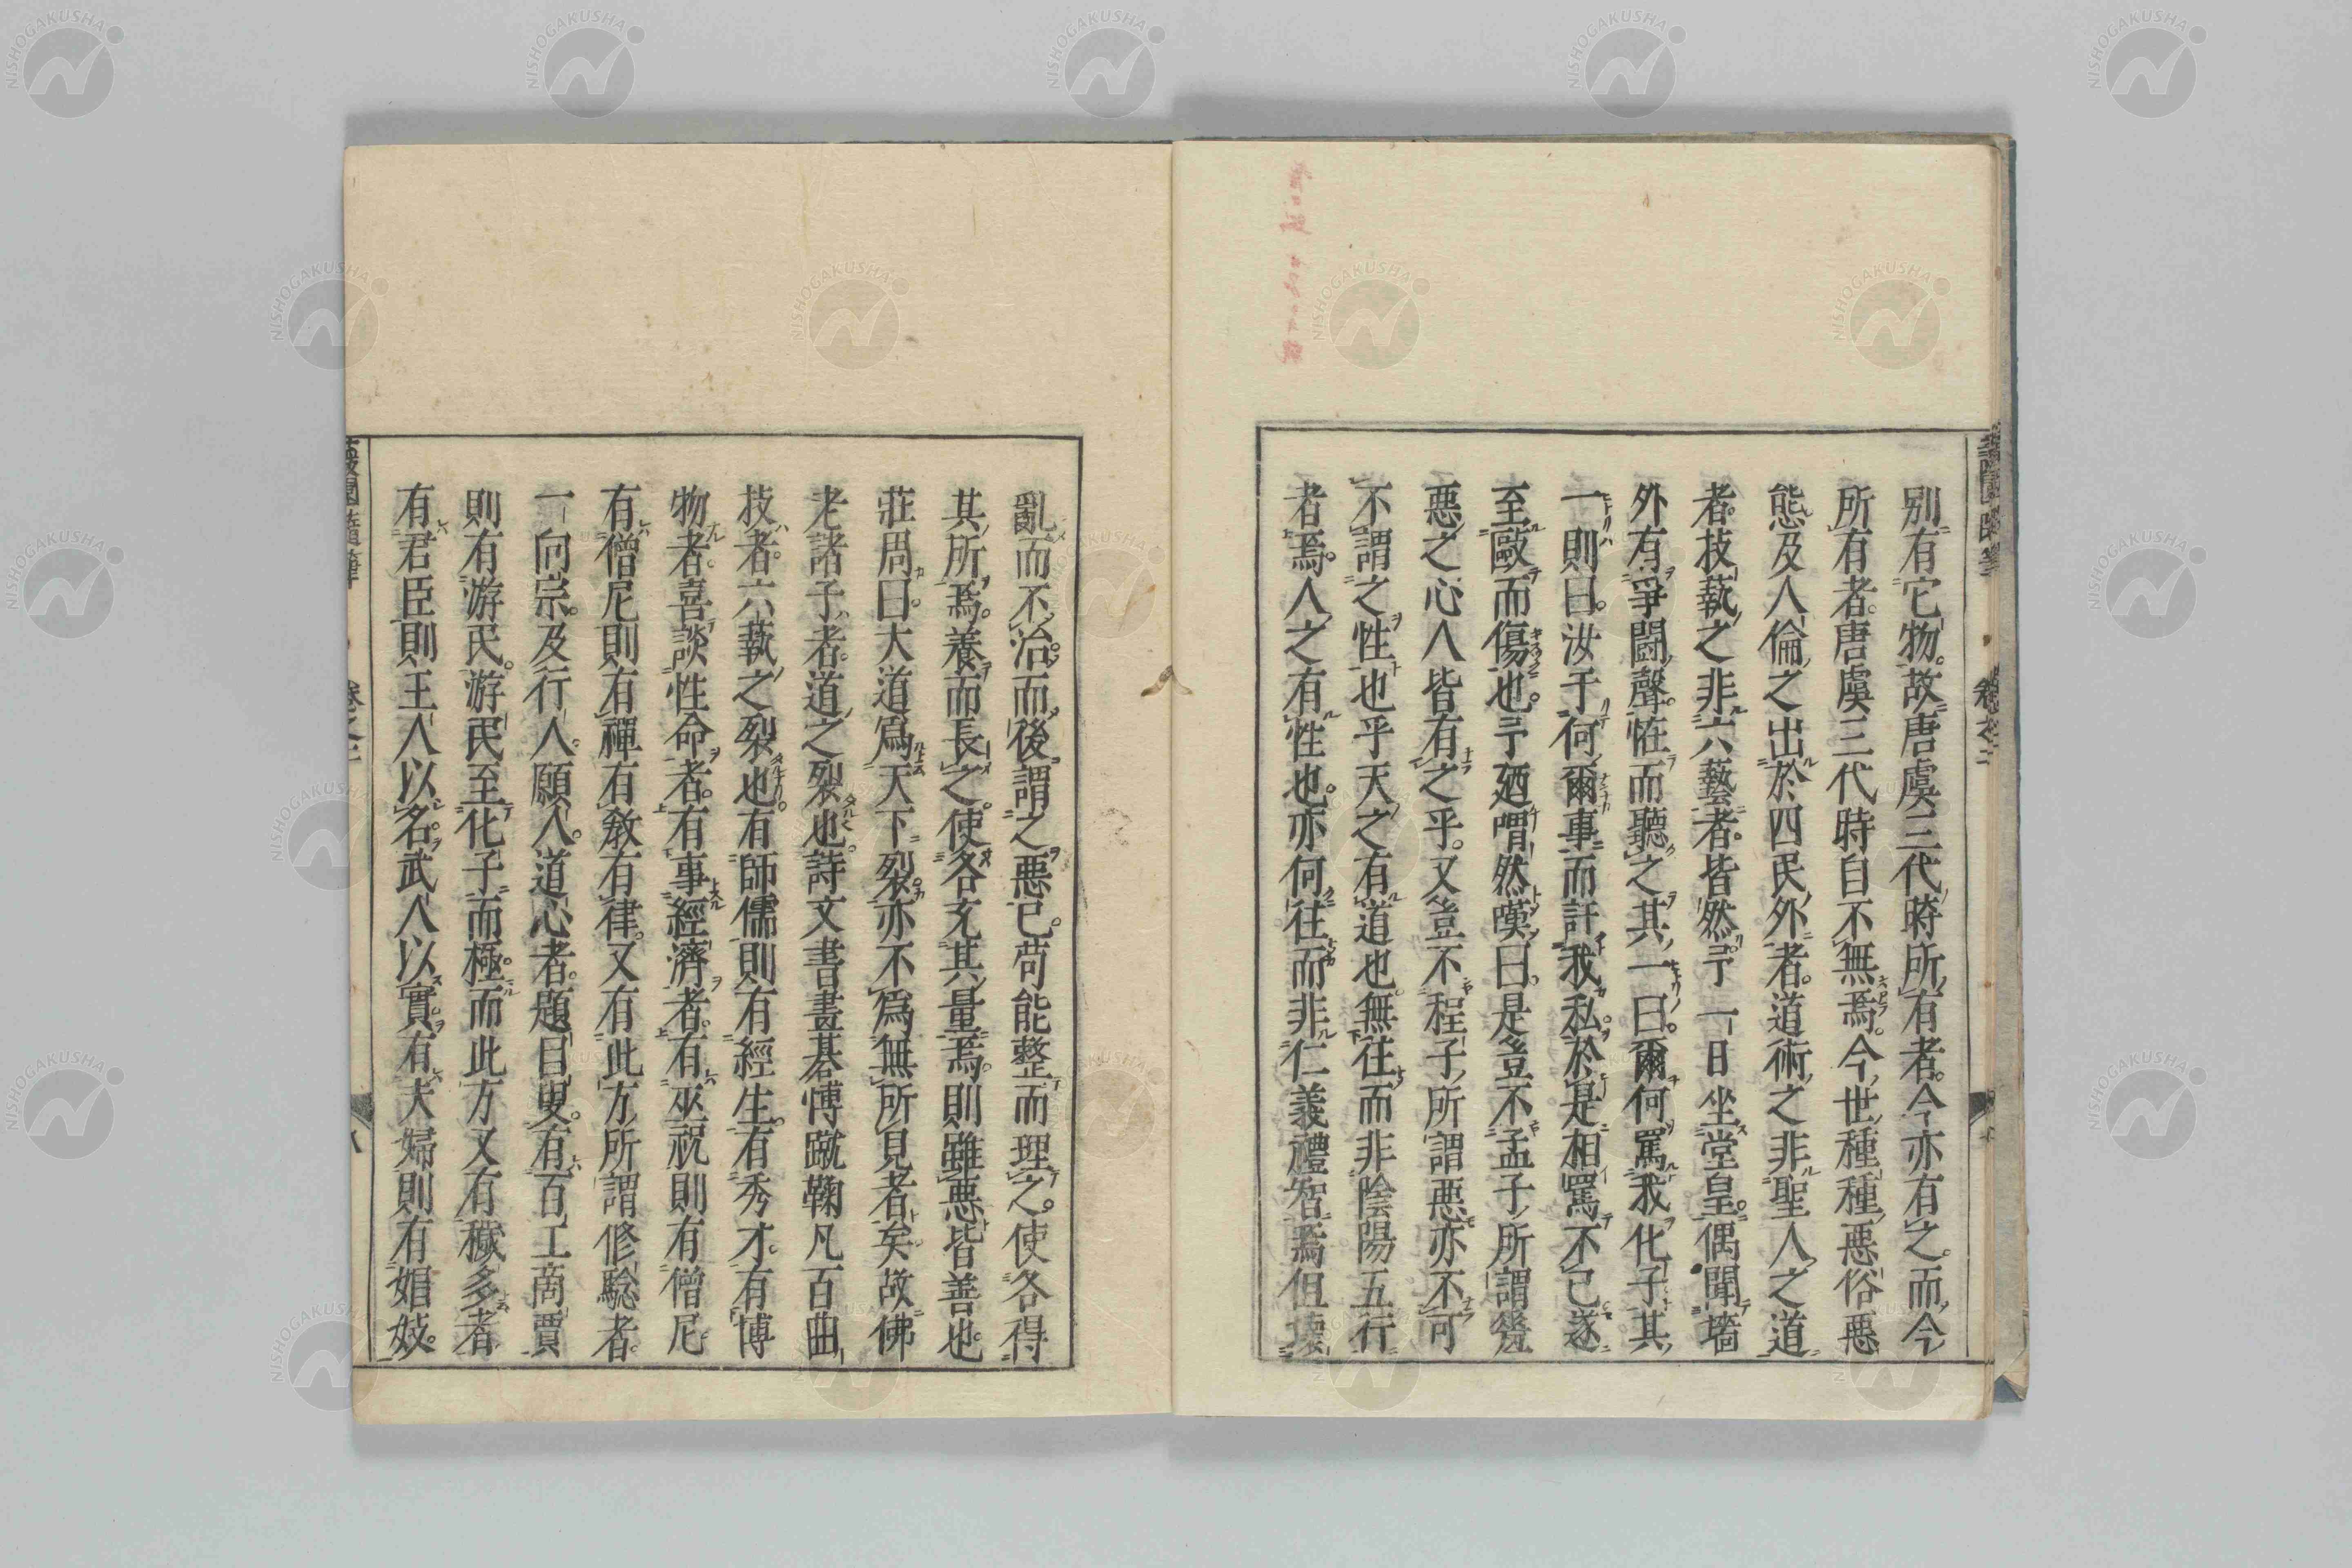 別有它物。故唐虞三代時所有者。今亦有之。而今
所有者。唐虞三代時自不無焉。今世種種惡俗惡
態及人倫之出於四民外者。道術之非聖人之道
者。技藝之非六藝者。皆然予一日坐堂皇。偶聞墻
外有爭鬪聲。恠而聽之其一曰。爾何罵我化子其
一則曰。汝于何爾事而訐我私於是相罵不已遂
至毆而傷也。予廼喟然嘆曰。是豈不孟子所謂
惡之心人皆有之乎。又豈不程子所謂惡亦不可
不謂之性也乎天之有道也無往而非陰陽五行
者焉。人之有性也。亦何往而非仁義禮智焉但壞
亂而不治而後謂之惡已。苟能整而理之。使各得
其所焉。養而長之。使各充其量焉。則雖惡皆善也。
莊周曰。大道爲天下裂亦不爲無所見者矣故佛
老諸子者。道之裂也。詩文書畫碁愽蹴鞠凡百曲
技者。六藝之裂也。有師儒則有經生。有秀才。有博
物者。喜談性命者。有事經濟者。有巫祝則有僧尼
有僧尼則有禪有敎有律。又有此方所謂修驗者。
一向宗。及行人。願人。道心者。題目叟。有百工商賈
則有游民。游民至化子而極。而此方又有穢多者
有君臣則王人以名。武人以實。有夫婦則有娼妓。
蘐園隨筆 卷之二 八
卷之二
NISHOGAKUSHA